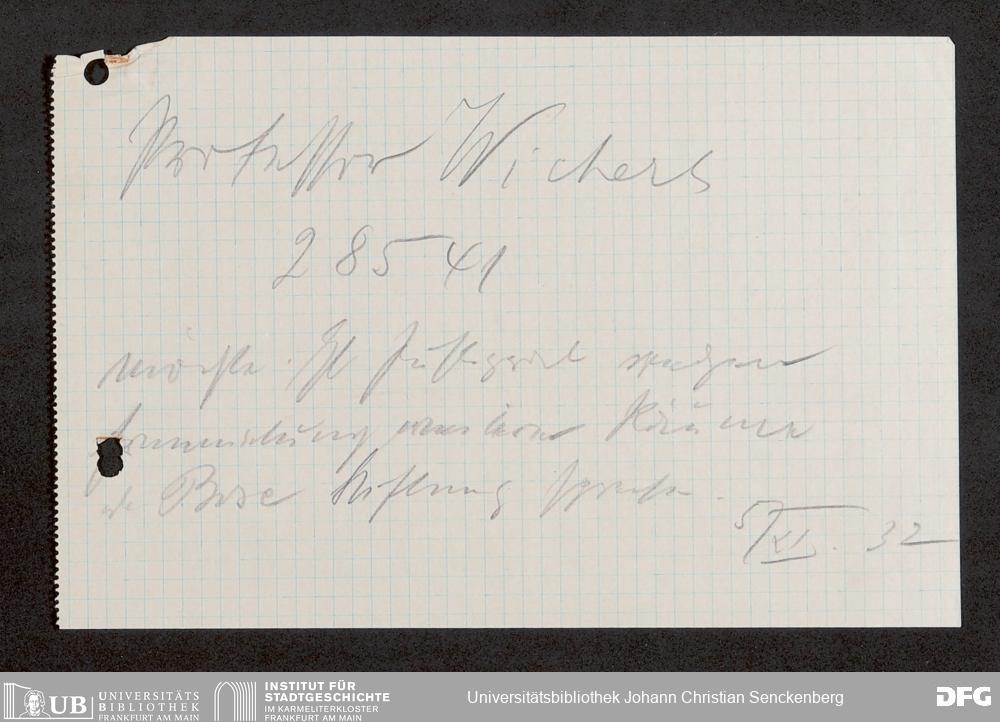 Professor Wichers
28541
möchte Justizrat wegen
Räume
Bose Stiftung sprechen.
5/XI. 32
UB UNIVERSITÄTS
BIBLIOTHEK
FRANKFURT AM MAIN
INSTITUT FÜR
STADTGESCHICHTE
IM KARMELITERKLOSTER
FRANKFURT AM MAIN
Universitätsbibliothek Johann Christian Senckenberg
DFG